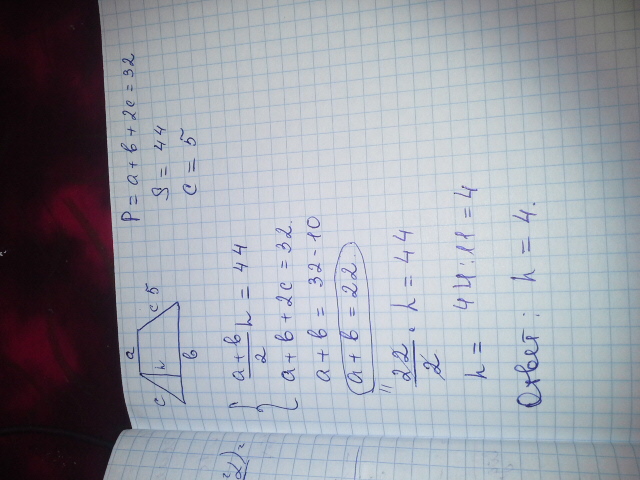 a
c
h
c 5
b
P = a + b + 2c = 32
S = 44
C = 5
a + b / 2 h = 44
a + b + 2c = 32.
a + b = 32 - 10
a + b = 22.
" 22 / 2 · h = 44
h = 44 : 11 = 4
Ответ: h = 4.
2) =